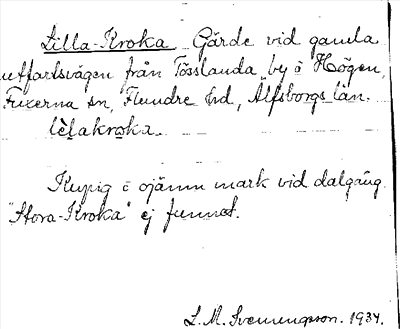 Lilla-Kroka Gärde vid gamla
utfartsvägen från Tösslanda by i Högen,
Fuxerna sn, Flundre hd, Älfsborgs län.
lèlakroka.
Kupig o ojämn mark vid dalgång.
"Stora-Kroka" ej funnet.
L. M. Svenungsson. 1934.